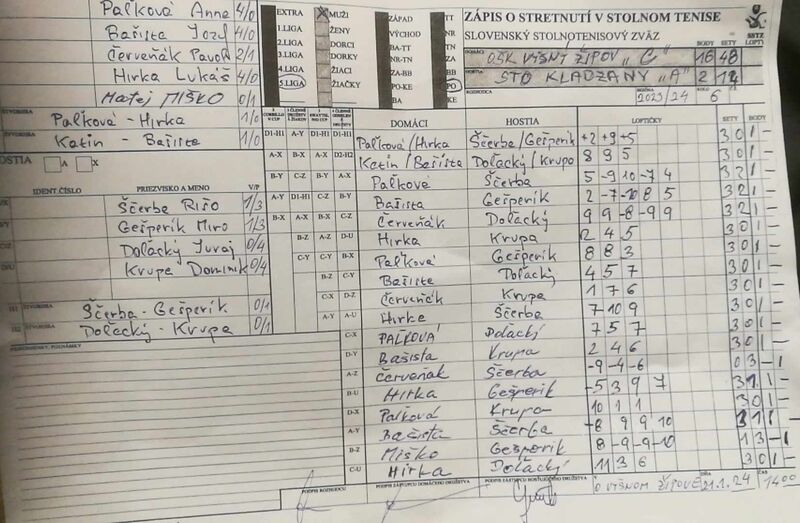 Paľková Anna 4/0
Bašista Jozef 4/0
Červeňák Pavol 2/1
Hirka Lukáš 4/0
Matej MIŠKO 0/1
ŠTVORHRA Paľková - Hirka 1/0
ŠTVORHRA Katin - Bašista 1/0
HOSTIA A X
IDENT ČÍSLO PRIEZVISKO A MENO V/P
Ščerba Rišo 1/3
Gešperik Miro 1/3
Dolacký Juraj 0/4
Krupa Dominik 0/4
ŠTVORHRA Ščerba - Gešperik 0/1
ŠTVORHRA Dolacký - Krupa 0/1
EXTRA MUŽI
1.LIGA ŽENY
2.LIGA DORCI
3.LIGA DORKY
4.LIGA ŽIACI
5.LIGA ŽIAČKY
ZÁPAD TT
VÝCHOD NR
BA-TT TN
TN-NR ZA
ZA-BB BB
PO-KE PO
BA KE
ZÁPIS O STRETNUTÍ V STOLNOM TENISE
SLOVENSKÝ STOLNOTENISOVÝ ZVÄZ
SSTZ
BODY SETY LOPTY
DOMÁCI OŠK VYŠNÝ ŽIPOV "C" 16 48
HOSTIA STO KLADZANY "A" 2 12
ROZHODCA 2023/24 6
DOMÁCI HOSTIA LOPTIČKY SETY BODY
D1-H1 A-Y D1-H1 D1-H1 Paľková/Hirka Ščerba/Gešperik +2 +9 +5 3 0 1 -
A-X B-X A-X D2-H2 Katin/Bašista Dolacký/Krupa 8 9 5 3 0 1 -
B-Y C-Z B-Y A-X Paľková Ščerba 5 -9 10 -7 4 3 2 1 -
A-Y D1-H1 C-Z B-Y Bašista Gešperik 2 -7 -10 8 5 3 2 1 -
B-X A-X B-X C-Z Červeňák Dolacký 9 9 -8 -9 9 3 2 1 -
B-Z A-Z D-U Hirka Krupa 2 4 5 3 0 1 -
C-Y C-Y B-X Paľková Gešperik 8 8 3 3 0 1 -
B-Z C-Y Bašista Dolacký 4 5 7 3 0 1 -
C-X D-Z Červeňák Krupa 1 7 6 3 0 1 -
A-Y A-U Hirka Ščerba 7 10 9 3 0 1 -
C-X PAĽKOVÁ Dolacký 7 5 7 3 0 1 -
D-Y Bašista Krupa 2 4 6 3 0 1 -
A-Z Červeňák Ščerba -9 -4 -6 0 3 - 1
B-U Hirka Gešperik -5 3 9 7 3 1 1 -
D-X Paľková Krupa 10 1 1 3 0 1 -
A-Y Bašista Ščerba -8 9 9 10 3 1 1 -
B-Z Miško Gešperik 8 -9 -9 -10 1 3 - 1
C-U Hirka Dolacký 11 3 6 3 0 1 -
PODPIS ROZHODCU PODPIS ZÁSTUPCU DOMÁCEHO DRUŽSTVA PODPIS ZÁSTUPCU HOSŤUJÚCEHO DRUŽSTVA VYŠNOM ŽIPOVE DŇA 21.1.24 ČAS 14 00